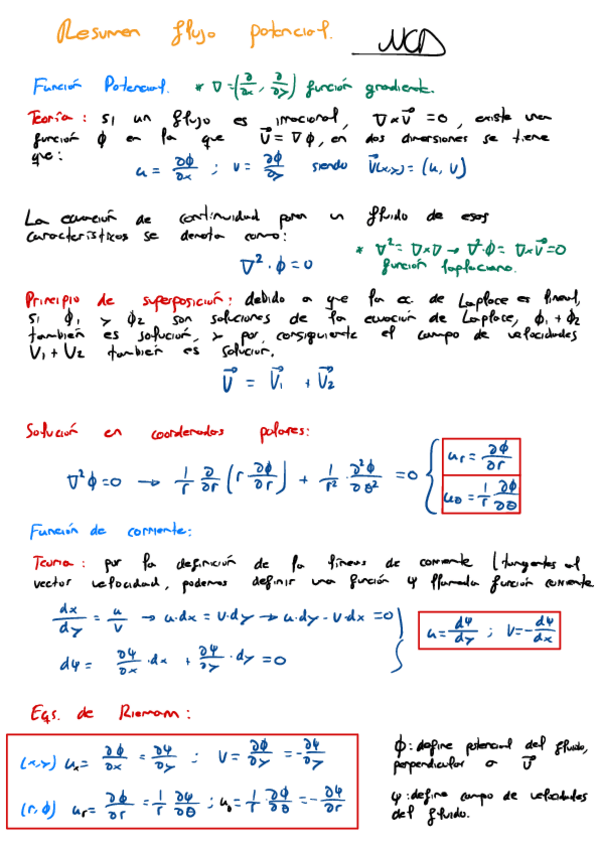 Resumen flujo potencial.
NCD
Función Potencial. * ∇=(∂/∂x, ∂/∂y) función gradiente.
Teoría: si un flujo es irrotacional, ∇×V⃗ =0, existe una
función ϕ en la que V⃗ = ∇ϕ, en dos dimensiones se tiene
que:
u = ∂ϕ/∂x ; v = ∂ϕ/∂y siendo V⃗(x,y) = (u, v)
La ecuación de continuidad para un fluido de esas
características se denota como:
* ∇² = ∇×∇ → ∇²·ϕ = ∇×V⃗=0
∇²·ϕ=0
función laplaciano.
Principio de superposición: debido a que la ec. de Laplace es lineal,
si ϕ₁ y ϕ₂ son soluciones de la ecuación de Laplace, ϕ₁ + ϕ₂
también es solución, y por consiguiente el campo de velocidades
V₁ + V₂ también es solución.
V⃗ = V⃗₁ + V⃗₂
Solución en coordenadas polares:
∇²ϕ=0 → 1/r ∂/∂r (r ∂ϕ/∂r) + 1/r² · ∂²ϕ/∂θ² =0 { ur = ∂ϕ/∂r
uθ = 1/r ∂ϕ/∂θ
Función de corriente:
Teoría: por la definición de la líneas de corriente (tangentes al
vector velocidad, podemos definir una función ψ llamada función corriente
dx/dy = u/v → u·dx = v·dy → u·dy - v·dx =0
u = dψ/dy ; v = -dψ/dx
dψ = ∂ψ/∂x · dx + ∂ψ/∂y · dy =0
Eqs. de Riemann:
(x,y) ux = ∂ϕ/∂x = ∂ψ/∂y ; v = ∂ϕ/∂y = -∂ψ/∂y
(r,ϕ) ur = ∂ϕ/∂r = 1/r ∂ψ/∂θ ; uθ = 1/r · ∂ϕ/∂θ = -∂ψ/∂r
ϕ: define potencial del fluido,
perpendicular a V⃗
ψ: define campo de velocidades
del fluido.